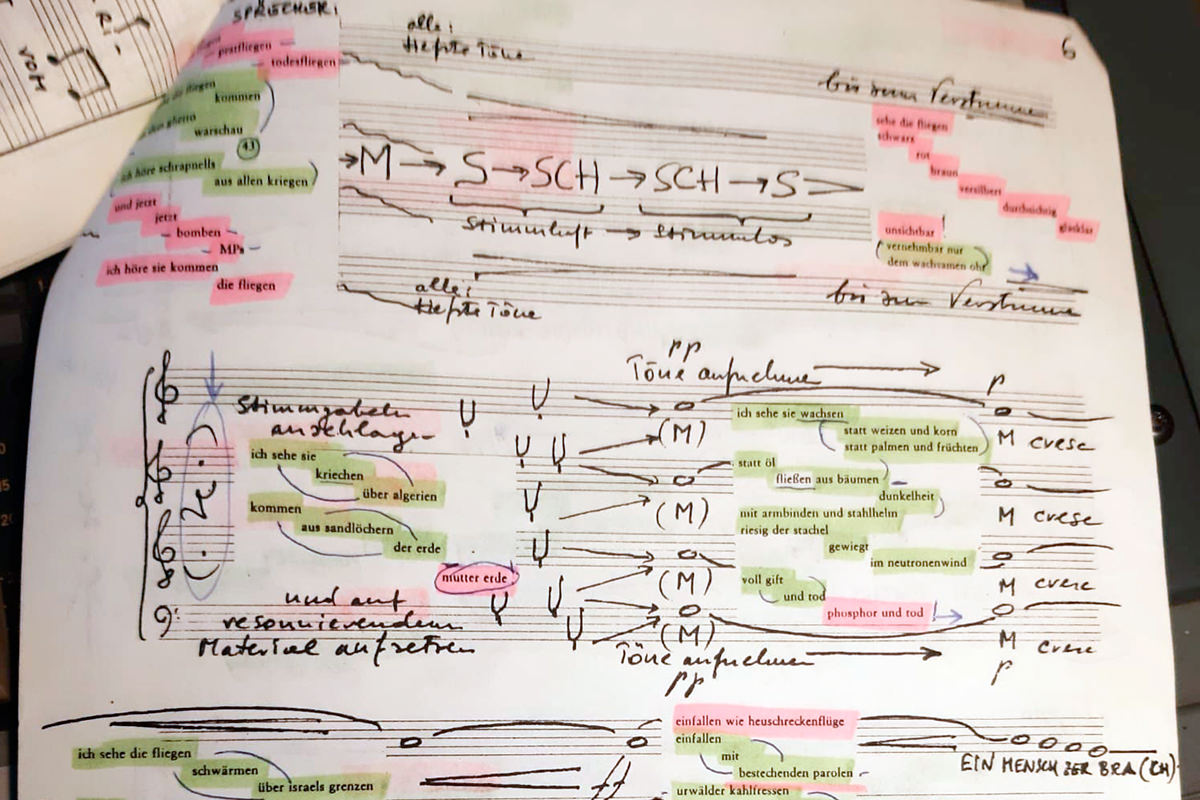 6
SPRECHER:
pestfliegen
todesfliegen
die fliegen
kommen
ghetto
warschau
43
ich höre schrapnells
aus allen kriegen
und jetzt
jetzt
bomben
MPs
ich höre sie kommen
die fliegen
alle:
Tiefste Töne
bis zum Verstummen
→ M → S → SCH → SCH → S
Stimmhaft → Stimmlos
alle:
Tiefste Töne
bis zum Verstummen
sehe die fliegen
schwarz
rot
braun
versilbert
durchsichtig
glasklar
unsichtbar
vernehmbar nur
dem wachsamen ohr
Stimmgabeln
anschlagen
ich sehe sie
kriechen
über algerien
kommen
aus sandlöchern
der erde
mutter erde
und auf
resonnierendem
Material aufsetzen
pp
Töne aufnehmen
(M)
(M)
(M)
(M)
Töne aufnehmen
pp
ich sehe sie wachsen
statt weizen und korn
statt palmen und früchten
statt öl
fließen aus bäumen
dunkelheit
mit armbinden und stahlhelm
riesig der stachel
gewiegt
im neutronenwind
voll gift
und tod
phosphor und tod
p
M cresc
M cresc
M cresc
M cresc
p
ich sehe die fliegen
schwärmen
über israels grenzen
ff
einfallen wie heuschreckenflüge
einfallen
mit
bestechenden parolen
urwälder kahlfressen
EIN MENSCH ZER BRA (CH)